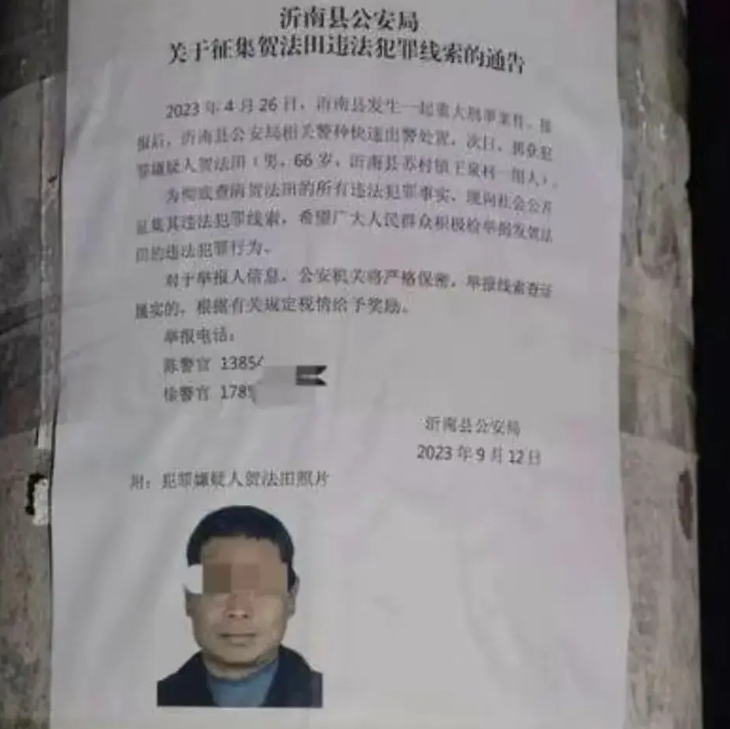 沂南县公安局
关于征集贺法田违法犯罪线索的通告
2023年4月26日，沂南县发生一起重大刑事案件。接
报后，沂南县公安局相关警种快速出警处置，次日，抓获犯
罪嫌疑人贺法田（男，66岁，沂南县苏村镇王泉村一组人）。
为彻底查清贺法田的所有违法犯罪事实，现向社会公开
征集其违法犯罪线索，希望广大人民群众积极检举揭发贺法
田的违法犯罪行为。
对于举报人信息，公安机关将严格保密，举报线索查证
属实的，根据有关规定视情给予奖励。
举报电话：
陈警官 13854
徐警官 178
沂南县公安局
2023年9月12日
附：犯罪嫌疑人贺法田照片